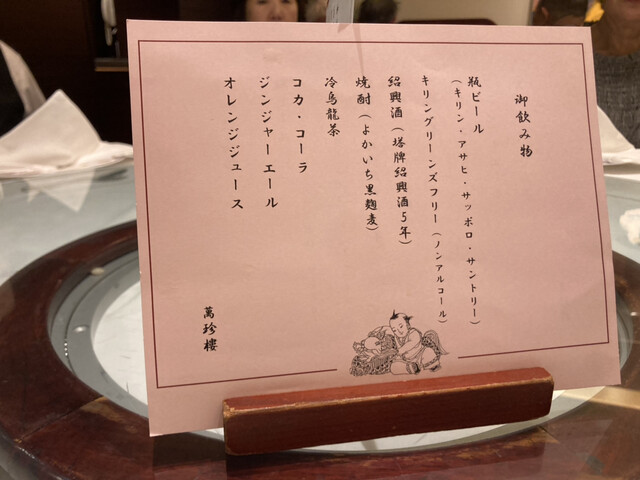 御飲み物
瓶ビール
(キリン・アサヒ・サッポロ・サントリー)
キリングリーンズフリー(ノンアルコール)
紹興酒(塔牌紹興酒5年)
焼酎(よかいち黒麹麦)
冷烏龍茶
コカ・コーラ
ジンジャーエール
オレンジジュース
萬珍樓